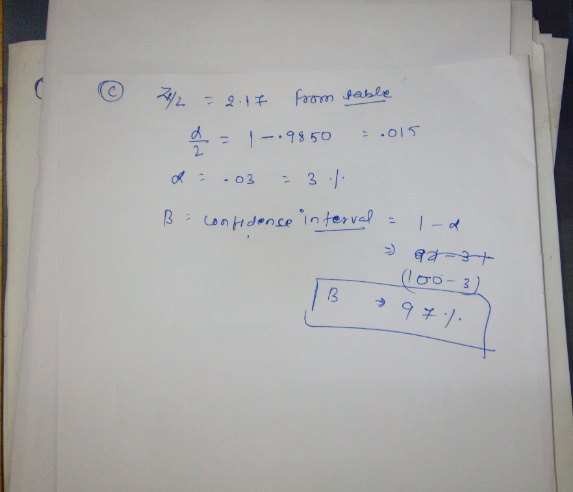 (c) Zα/2 = 2.17 from table
α/2 = 1 - .9850 = .015
α = .03 = 3 %
B = confidence interval = 1 - α
⇒
(100 - 3)
B → 97 %.